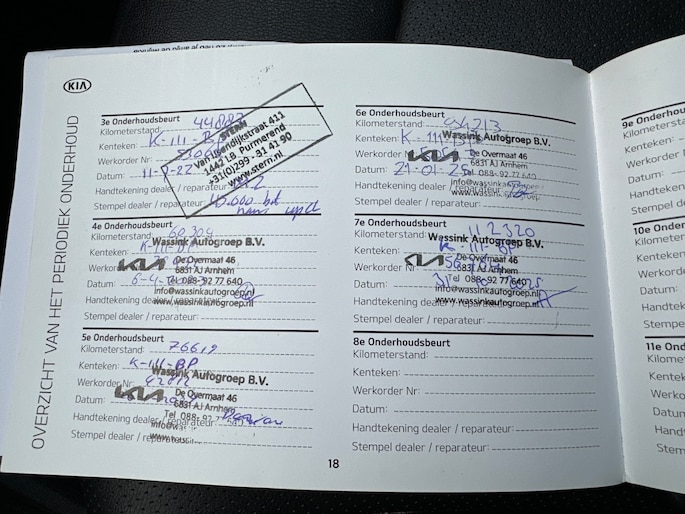 KIA
OVERZICHT VAN HET PERIODIEK ONDERHOUD
3e Onderhoudsbeurt
Kilometerstand: 44883
Kenteken: K-111-BP
Werkorder Nr:
Datum: 11-
Handtekening dealer / reparateur:
Stempel dealer / reparateur: 45.000 bt
STERN
Van IJsendijkstraat 411
1442 LB Purmerend
+31(0)299 - 31 41 90
www.stern.nl
4e Onderhoudsbeurt
Kilometerstand: 60304
Kenteken: K-111-BP
Werkorder
Datum: 6-4-
Handtekening dealer / reparateur:
Stempel dealer / reparateur:
Wassink Autogroep B.V.
KIA
De Overmaat 46
6831 AJ Arnhem
Tel 088-92 77 640
info@wassinkautogroep.nl
www.wassinkautogroep.nl
5e Onderhoudsbeurt
Kilometerstand: 76619
Kenteken: K-111-BP
Werkorder Nr:
Datum:
Handtekening dealer / reparateur:
Stempel dealer / reparateur:
Wassink Autogroep B.V.
KIA
De Overmaat 46
6831 AJ Arnhem
Tel 088-92 77
info@wa
6e Onderhoudsbeurt
Kilometerstand:
Kenteken: K-111-BP
Werkorder Nr:
Datum: 21-01-2
Handtekening dealer / reparateur:
Stempel dealer / reparateur:
Wassink Autogroep B.V.
KIA
De Overmaat 46
6831 AJ Arnhem
info@wassinkautogroep
www.wassinkautogroep.nl
7e Onderhoudsbeurt
Kilometerstand: 112320
Kenteken: K-111-BP
Werkorder Nr
Datum:
Handtekening dealer / reparateur:
Stempel dealer / reparateur:
Wassink Autogroep B.V.
KIA
De Overmaat 46
6831 AJ Arnhem
Tel 088-92 77 640
info@wassinkautogroep.nl
www.wassinkautogroep.nl
8e Onderhoudsbeurt
Kilometerstand:
Kenteken:
Werkorder Nr:
Datum:
Handtekening dealer / reparateur:
Stempel dealer / reparateur:
18
9e Onderho
Kilometersta
Kenteken:
Werkorder
Datum:
Handteke
Stempel d
10e Onder
Kilometer
Kenteken
Werkord
Datum:
Handtek
Stempe
11e Ond
Kilome
Kentek
Werko
Datu
Hand
Stem